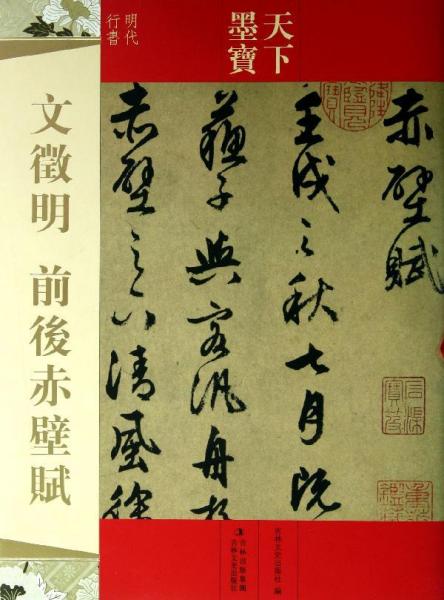 天下
墨寶
明代
行書
文徵明 前後赤壁賦
赤壁賦
壬戌之秋七月既
蘇子與客汎舟於
赤壁之下清風徐
石渠
寶笈
吉林文史出版社 編
吉林出版集團
吉林文史出版社